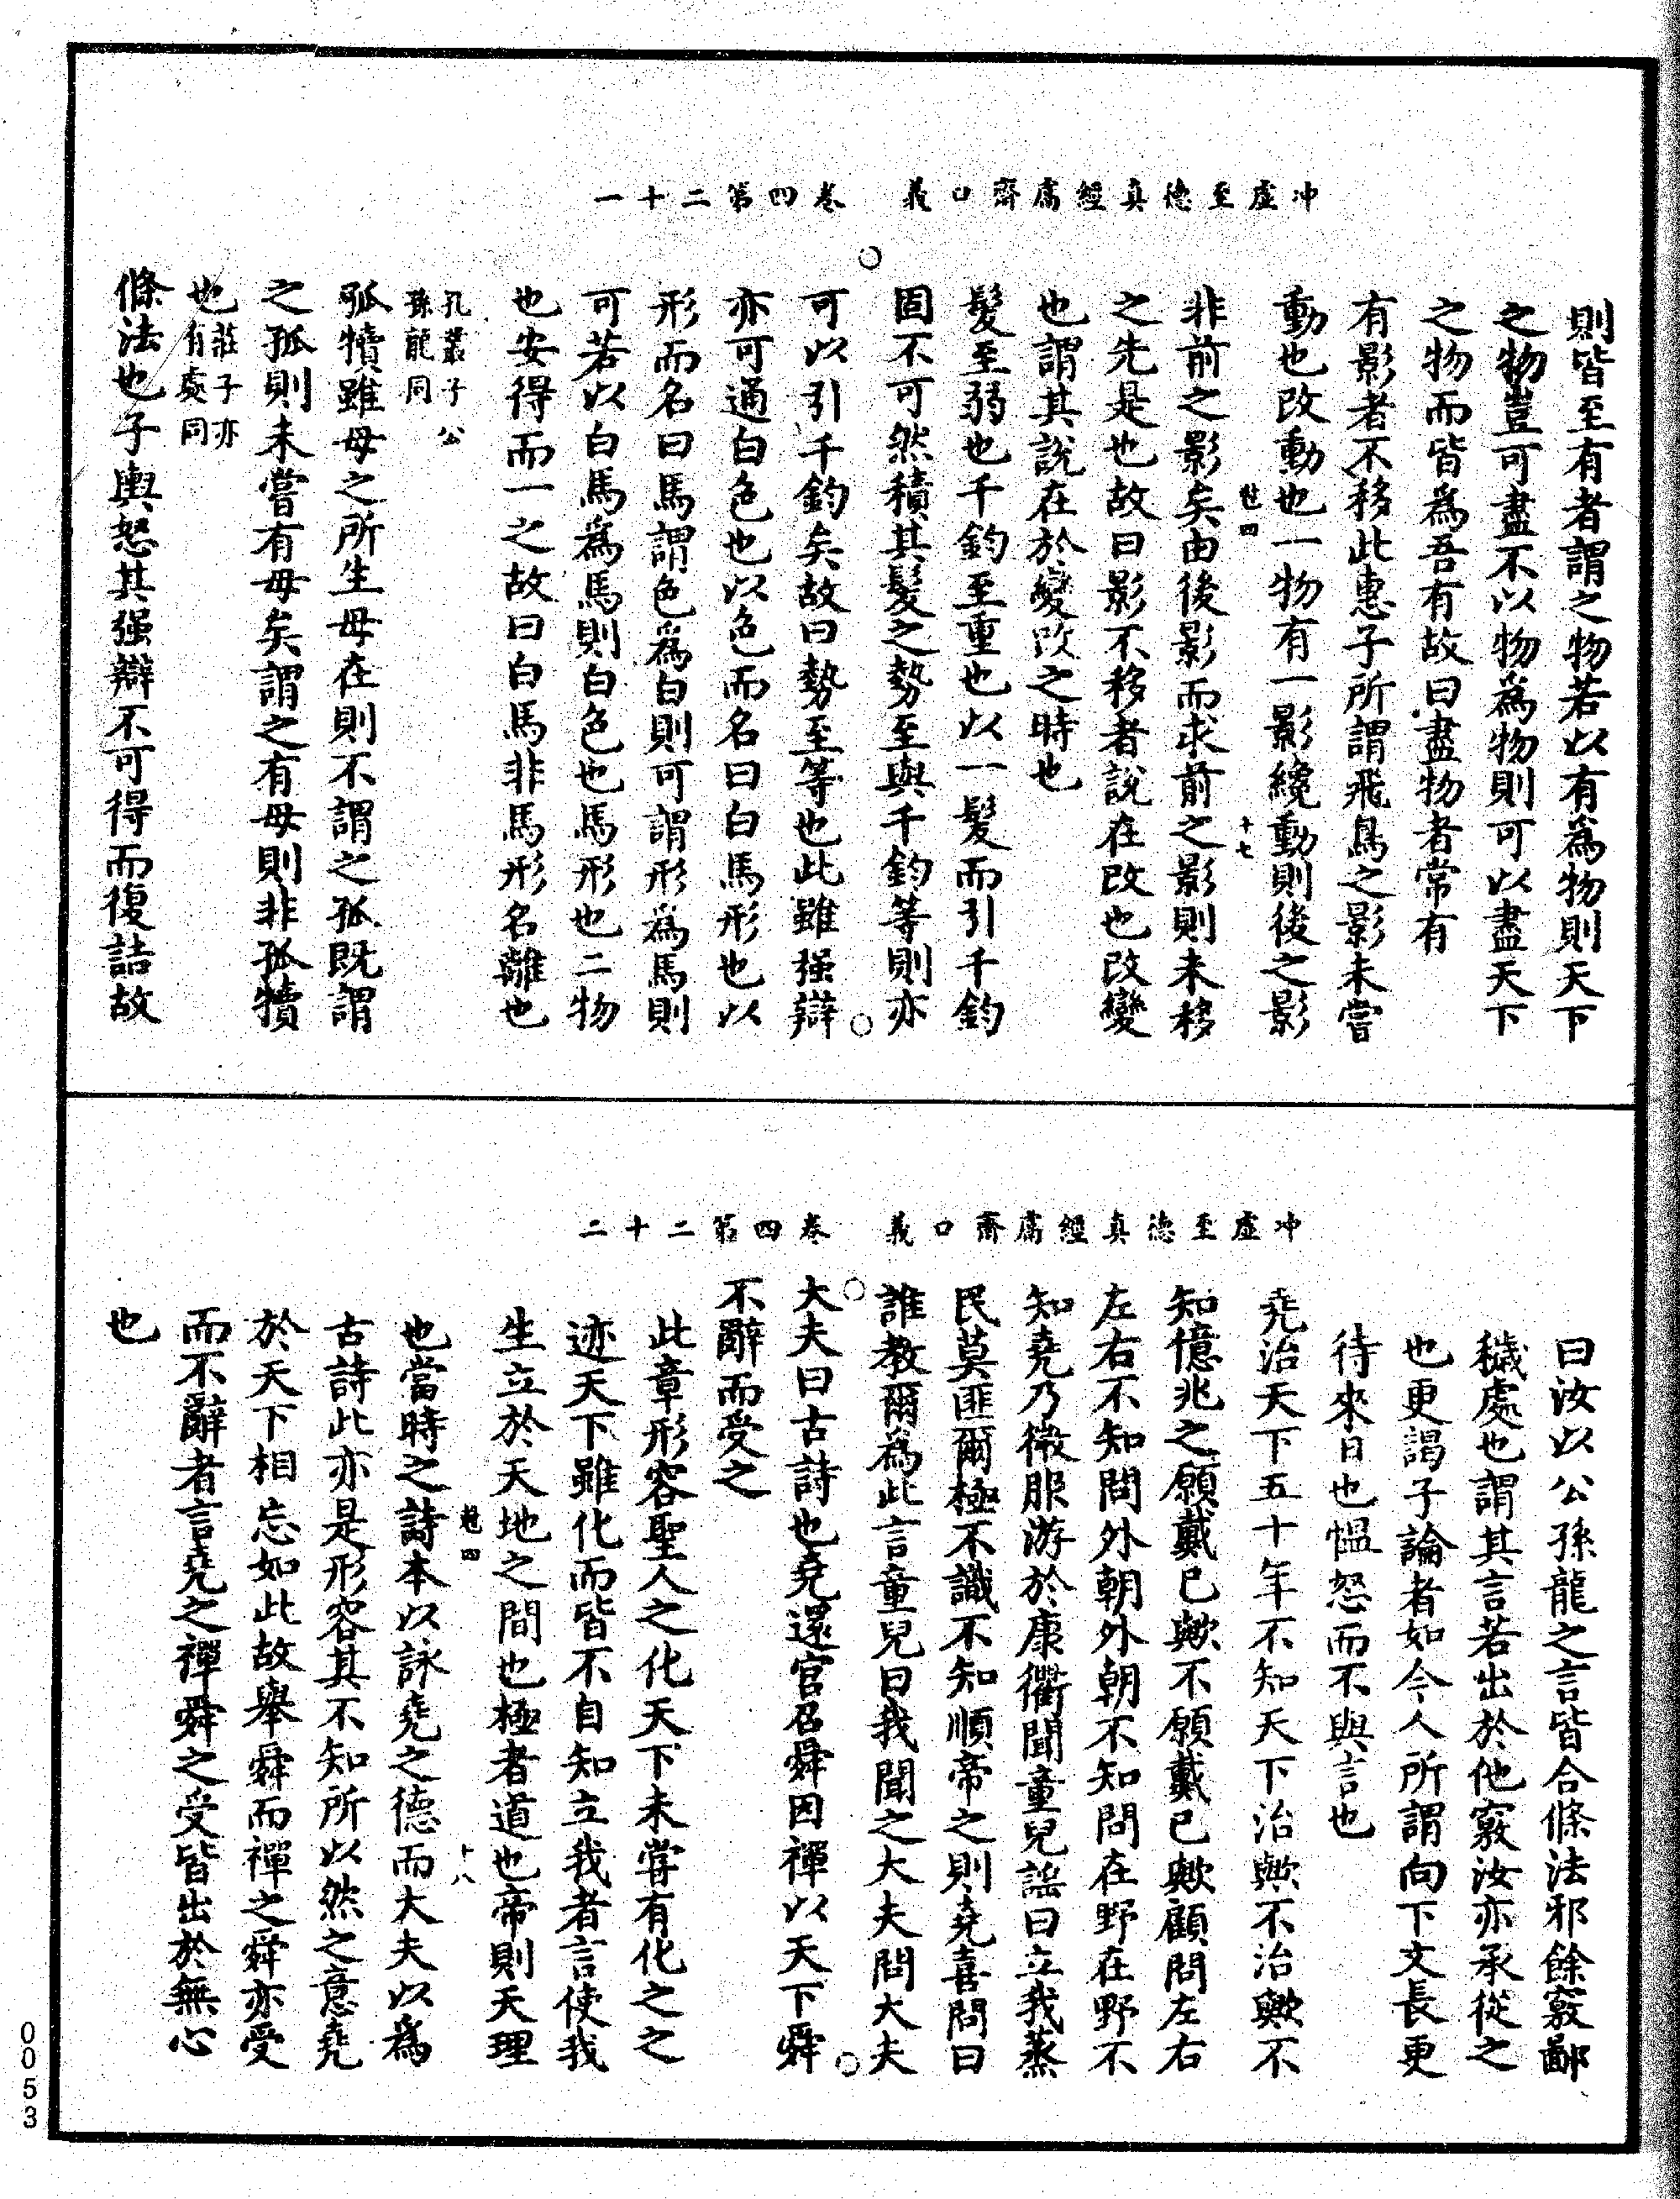 冲虛至德真經鬳齋口義　卷四第二十一
則皆至有者謂之物若以有爲物則天下
之物豈可盡不以物爲物則可以盡天下
之物而皆爲吾有故曰盡物者常有
有影者不移此惠子所謂飛鳥之影未嘗
動也改動也一物有一影纔動則後之影
四　十七
非前之影矣由後影而求前之影則未移
之先是也故曰影不移者說在改也改變
也謂其說在於變改之時也
髮至弱也千鈞至重也以一髮而引千鈞
固不可然積其髮之勢至與千鈞等則亦
○可以引千鈞矣故曰勢至等也此雖强辯○
亦可通白色也以色而名曰白馬形也以
形而名曰馬謂色爲白則可謂形爲馬則
可若以白馬爲馬則白色也馬形也二物
也安得而一之故曰白馬非馬形名離也
孔叢子公
孫龍同
孤犢雖母之所生母在則不謂之孤既謂
之孤則未嘗有母矣謂之有母則非孤犢
也莊子亦
有處同
條法也子輿怒其强辯不可得而復詰故
冲虛至德真經鬳齋口義　卷四第二十二
曰汝以公孫龍之言皆合條法邪餘竅鄙
穢處也謂其言若出於他竅汝亦承從之
也更謁子論者如今人所謂向下文長更
待來日也慍怒而不與言也
堯治天下五十年不知天下治歟不治歟不
知億兆之願戴已歟不願戴已歟顧問左右
左右不知問外朝外朝不知問在野在野不
知堯乃微服游於康衢聞童兒謠曰立我蒸
民莫匪爾極不識不知順帝之則堯喜問曰
誰教爾爲此言童兒曰我聞之大夫問大夫
○大夫曰古詩也堯還宮召舜因禪以天下舜○
不辭而受之
此章形容聖人之化天下未嘗有化之之
迹天下雖化而皆不自知立我者言使我
生立於天地之間也極者道也帝則天理
四　十八
也當時之詩本以詠堯之德而大夫以爲
古詩此亦是形容其不知所以然之意堯
於天下相忘如此故舉舜而禪之舜亦受
而不辭者言堯之禪舜之受皆出於無心
也
0053